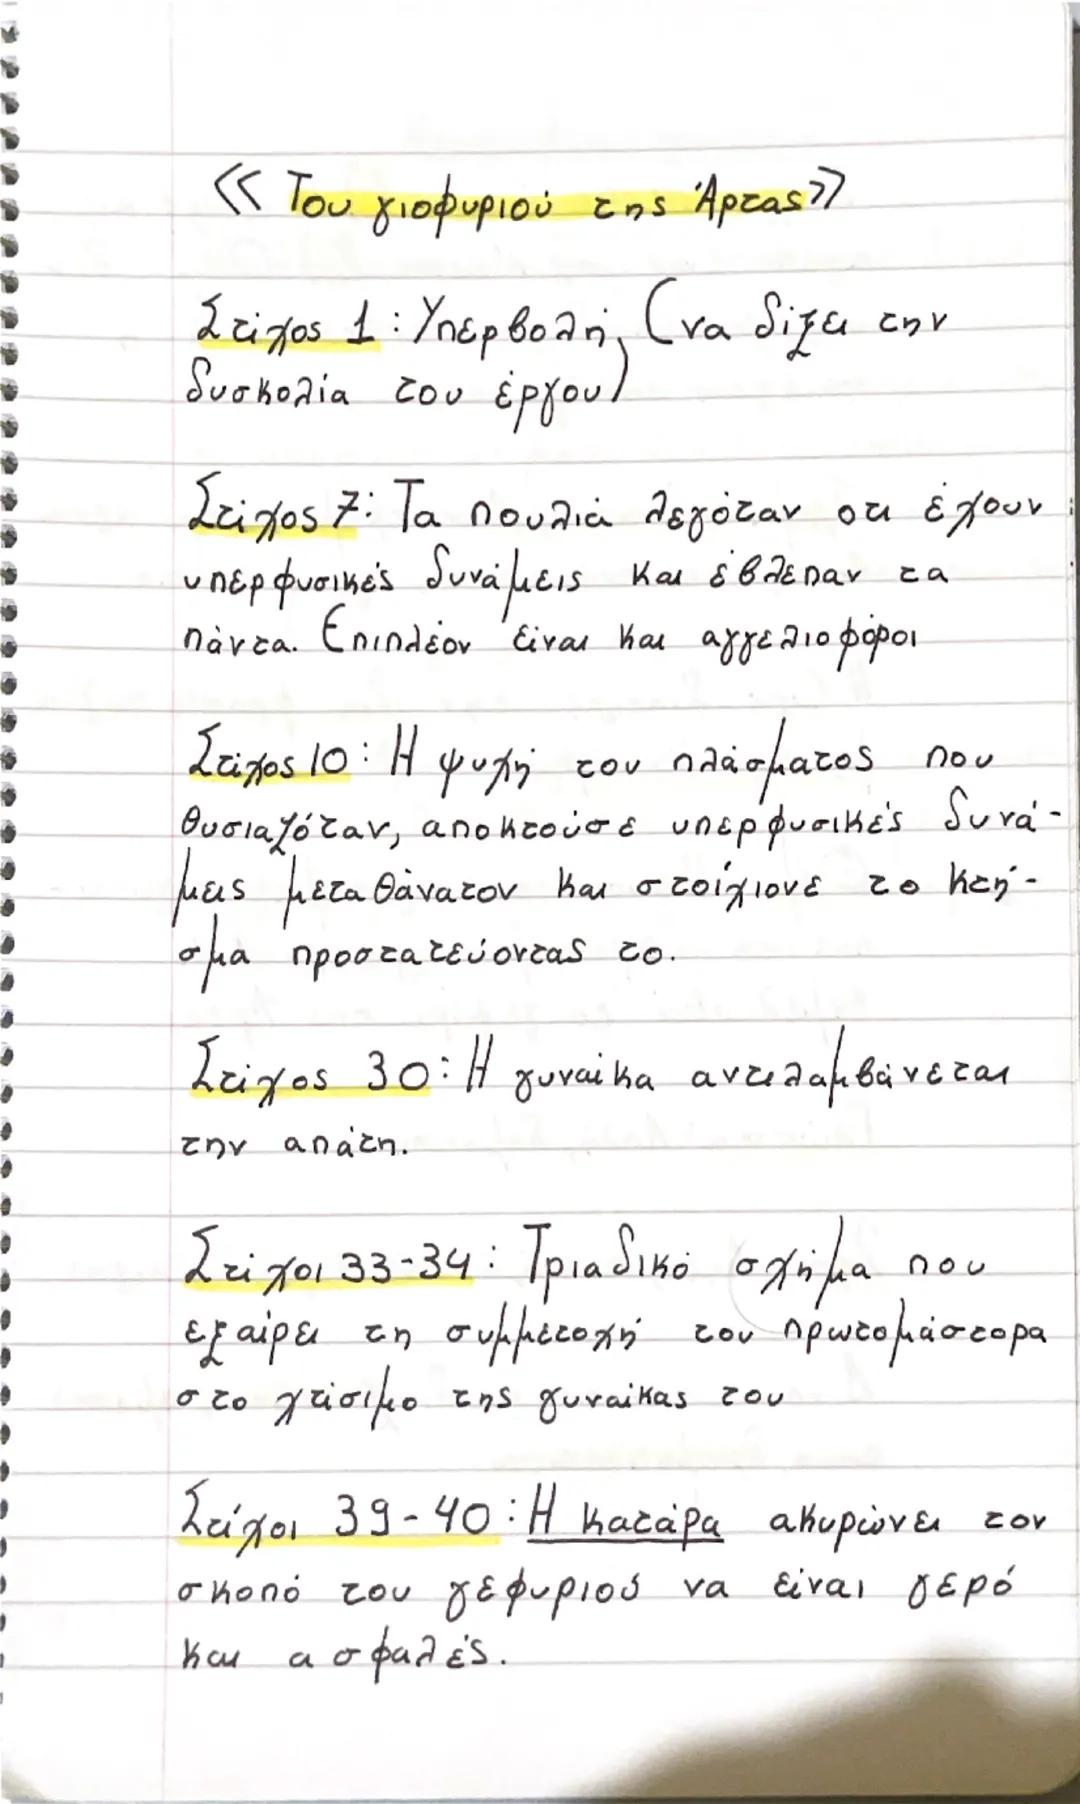 << Του γιοφυριού της Άρτας>>
Στίχος 1: Υπερβολή, (να δίξει την
δυσκολία του έργου)
Στίχος 7: Τα πουλιά λεγόταν οτι έχουν
υπερφυσικές δυνάμεις και έβλεπαν τα
πάντα. Επιπλέον είναι και αγγελιοφόροι
Στίχος 10: Η ψυχή του πλάσματος που
θυσιαζόταν, αποκτούσε υπερφυσικές δυνά-
μεις μετα θάνατον και στοίχιονε το κτή-
σμα προστατεύοντας το.
Στίχος 30: Η γυναίκα αντιλαμβάνεται
την απάτη.
Στίχοι 33-34: Τριαδικό σχήμα που
εξαίρει τη συμμετοχή του πρωτομάστορα
στο χτίσιμο της γυναίκας του
Στίχοι 39-40: Η κατάρα ακυρώνει τον
σκοπό του γεφυριού να είναι γερό
και ασφαλές.